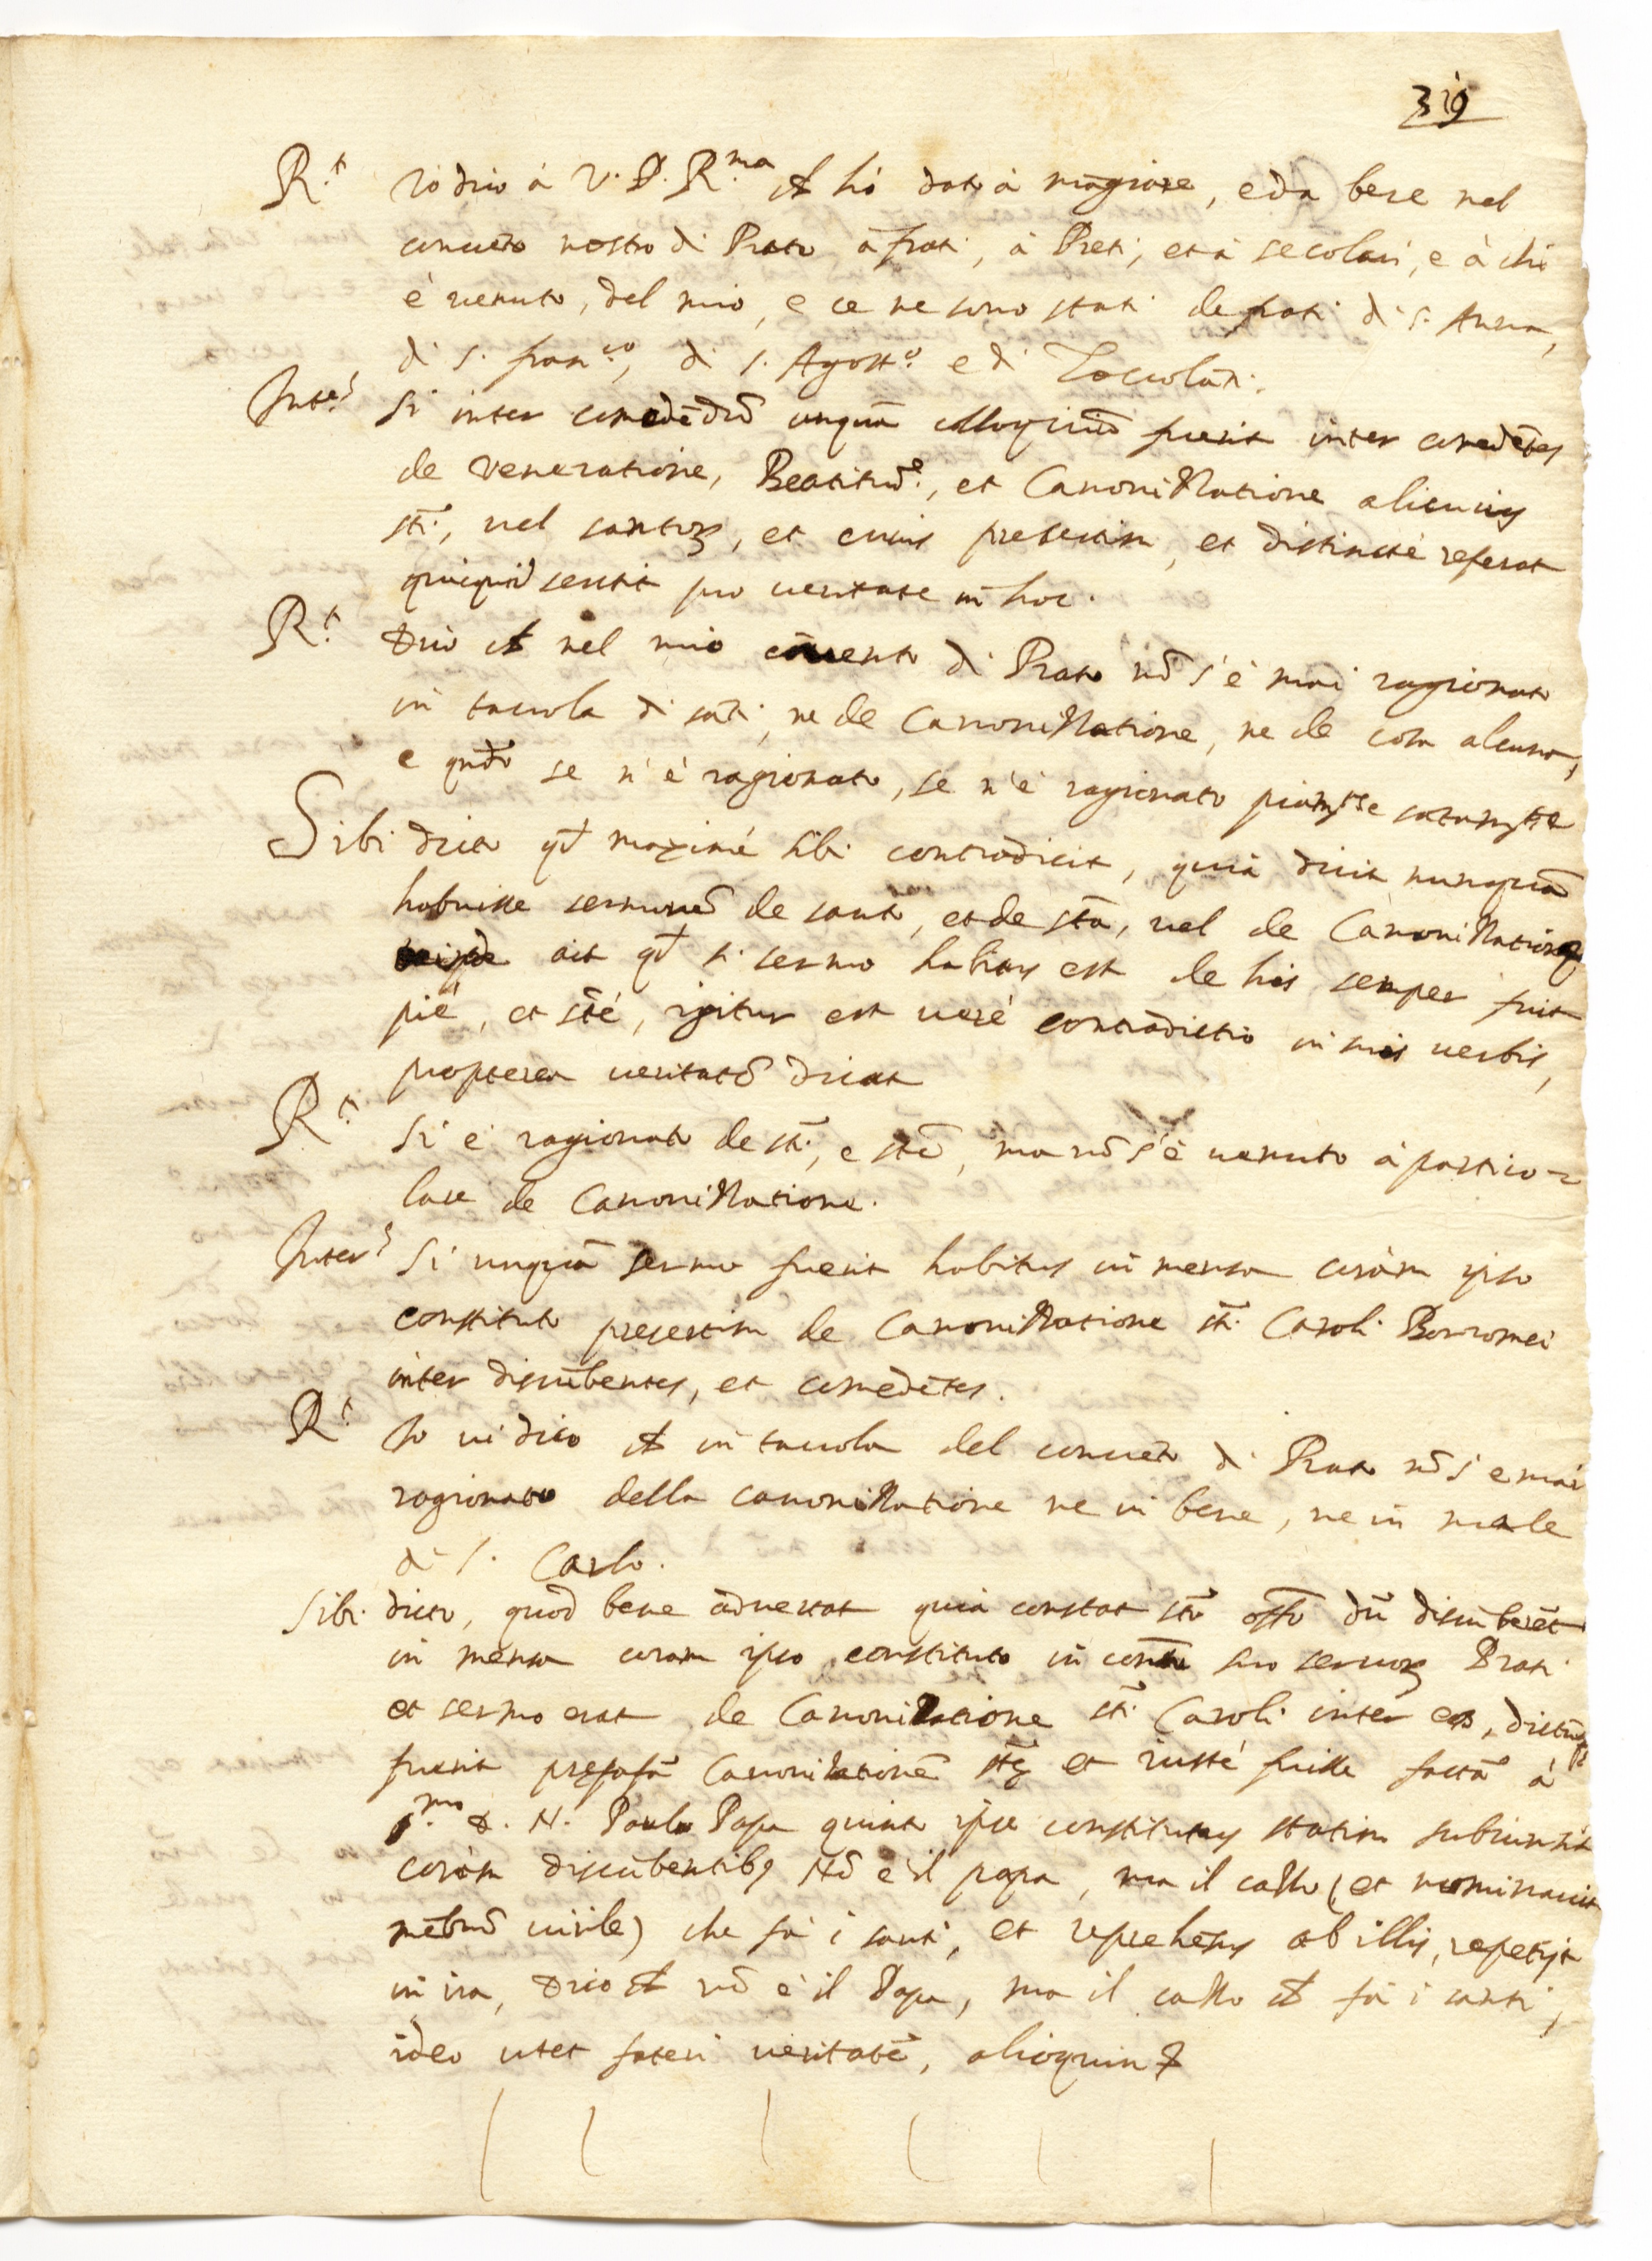 319
R.t Io dico à V. P. R.ma che hò dato à mãgiare, e da bere nel
conuẽto nostro di Prato à frati, à Preti, et à secolari, e à chi
è uenuto, del mio, e ce ne sono stati de frati di S. Anna,
di S. fran.co, di S. Agost.o e di Zoccolãti.
Inte.s Si inter comedẽdũ unquã colloquiũ fuerit inter comedẽtes
de veneratione, Beatitud.e, et Canonizzatione alicuius
sti, uel santorũ, et cuius presertim, et distinctè referat
quicquid sentit pro ueritate in hoc.
R.t Dico che nel mio cõuento di Prato nõ s'è mai ragionato
in tauola di sãti, ne de Canonizzatione, ne de cosa alcuna,
e quãdo se n'è ragionato, se n'è ragionato piamẽte santamẽte
Sibi dicto qd maximè sibi contradicit, quia dicit nunquã
habuisse sermonẽ de santo, et de stã, uel de Canonizzatione
ait qd si sermo habitus est de his semper fuit
piè, et stẽ, igitur est uerè contradictio in suis uerbis,
propterea ueritatẽ dicat
R.t Si è ragionato de sti, e stẽ, ma nõ s'è uenuto à partico-
lare de Canonizzatione.
Inter.s Si unquã sermo fuerit habitus in mensa coràm ipso
constituto presertim de Canonizzatione sti Caroli Borromei
inter discũbentes, et comedẽtes.
R.t Io ui dico che in tauola del conuẽto di Prato nõ s'è mai
ragionato della canonizzatione ne in bene, ne in male
di S. Carlo.
Sibi dicto, quod bene aduertat quia constat sto offo dũ discũberẽt
in mensa coram ipso constituto in conuẽtu suo seruorũ Prati
et sermo erat de Canonizatione sti Caroli inter eos, dictũq
fuerit prefatã Canonizationẽ stẽ et iustè fuisse factã à
S.mo D. N. Paulo Papa quinto ipse constitutus statim subiunxit
coràm discũbentibus Nõ è il papa, ma il cazzo (et nominauit
mẽbrũ uirile) che fà i santi, et reprehẽsus ab illis, repetijt
in ira, Dico che nõ è il Papa, ma il cazzo che fà i santi,
ideo uelet fateri ueritatẽ, alioquin &